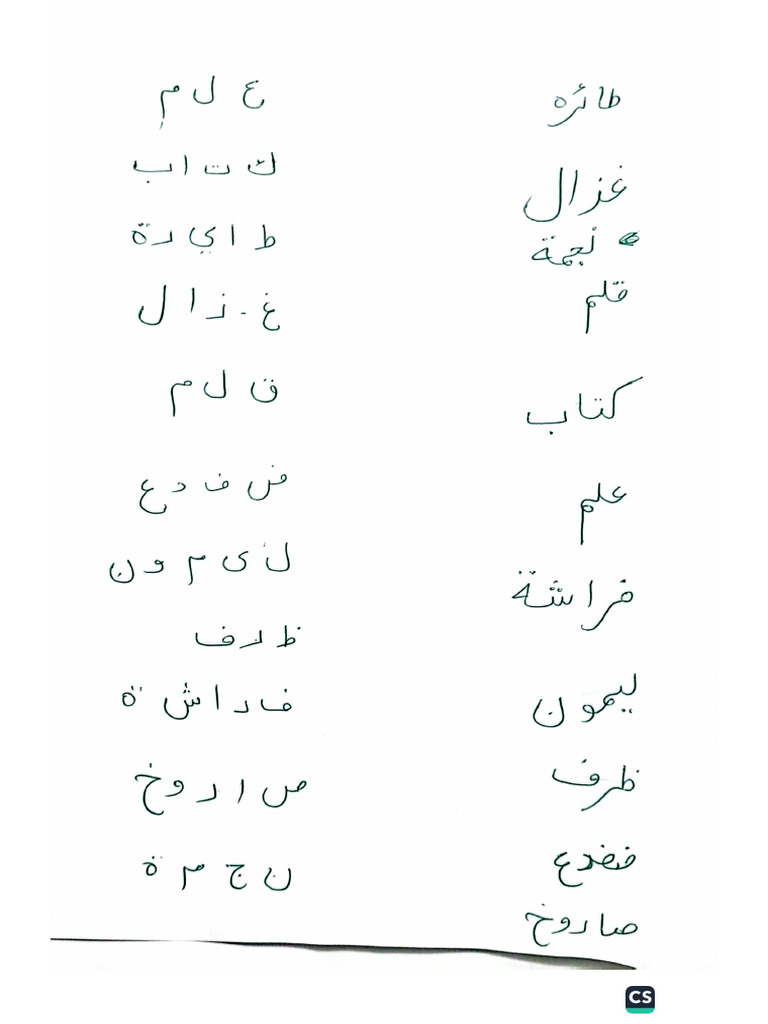 طائره
غزال
نجمة
قلم
كتاب
علم
فراشة
ليمون
ظرف
ضفدع
صاروخ
ع ل م
ك ت ا ب
ط ا ي ر ة
غ ز ا ل
ق ل م
ض ف د ع
ل ي م و ن
ظ ر ف
ف ر ا ش ة
ص ا ر و خ
ن ج م ة
CS